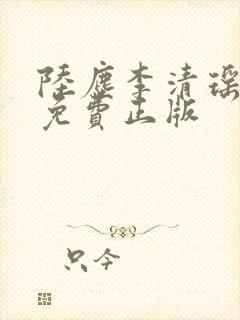 陸塵李清瑤
免費正版
只今